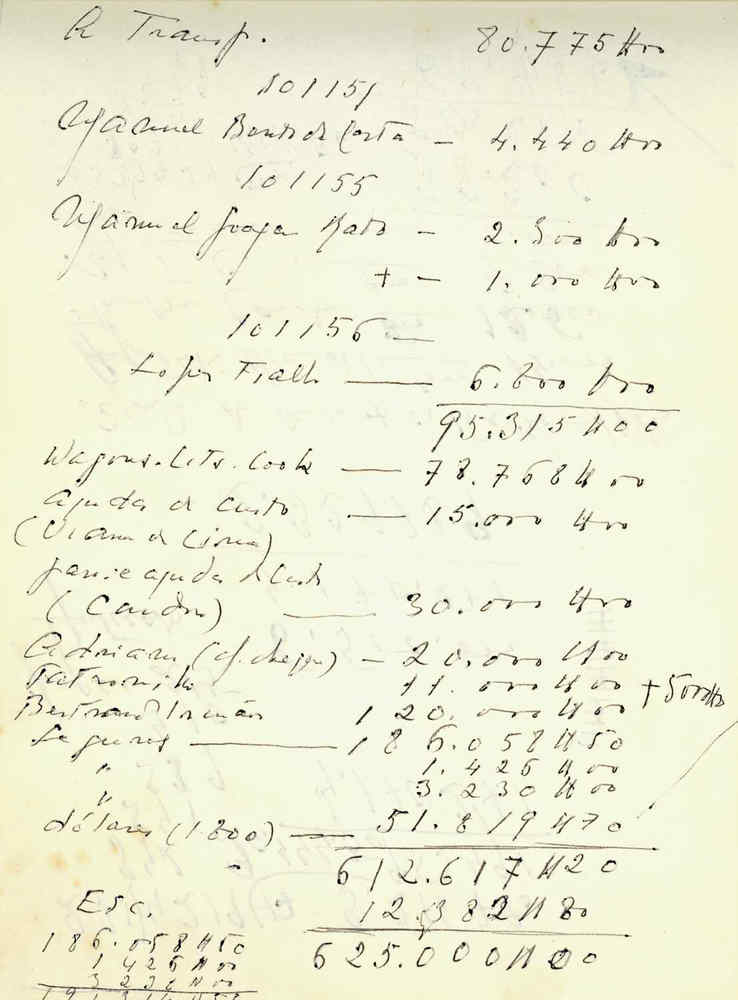 A Transp. 80.775$00
101151
Manuel Bento da Costa - 4.440$00
101155
Manuel Graça Rato - 2.300$00
+ - 1.000$00
101156 -
Lopes Fialho — 6.800$00
95.315$00
Wagons-Lits-Cook — 78.768$00
ajuda de custo — 15.000$00
(Viana de Lima)
ajuda de Custo
(Candr) — 30.000$00
Adriano (cf. cheque) - 20.000$00
11.000$00 + 500$00
Bertrand Irmãos 120.000$00
Seguros — 186.058$50
" 1.426$00
" 3.230$00
dólares (1800) — 51.819$70
612.617$20
12.382$80
625.000$00
Esc.
186.058$50
1426$00
3230$00